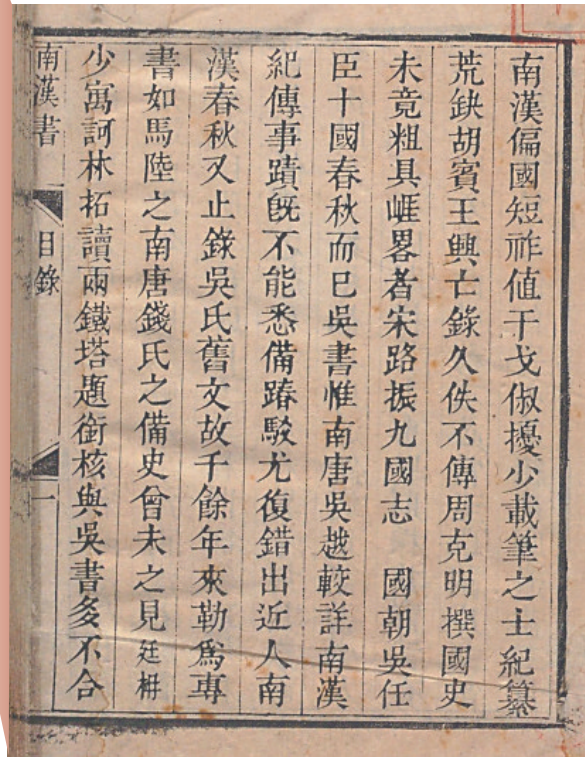 南漢偏國短祚值干戈俶擾少載筆之士紀纂
荒鈌胡賓王興亡錄久佚不傳周克明撰國史
未竟粗具崕畧者宋路振九國志　國朝吳任
臣十國春秋而巳吳書惟南唐吳越較詳南漢
紀傳事蹟旣不能悉備踳駁尤復錯出近人南
漢春秋又止錄吳氏舊文故千餘年來勒爲專
書如馬陸之南唐錢氏之備史曾未之見廷枏
少寓訶林拓讀兩鐵塔題銜核與吳書多不合
南漢書　目錄　一